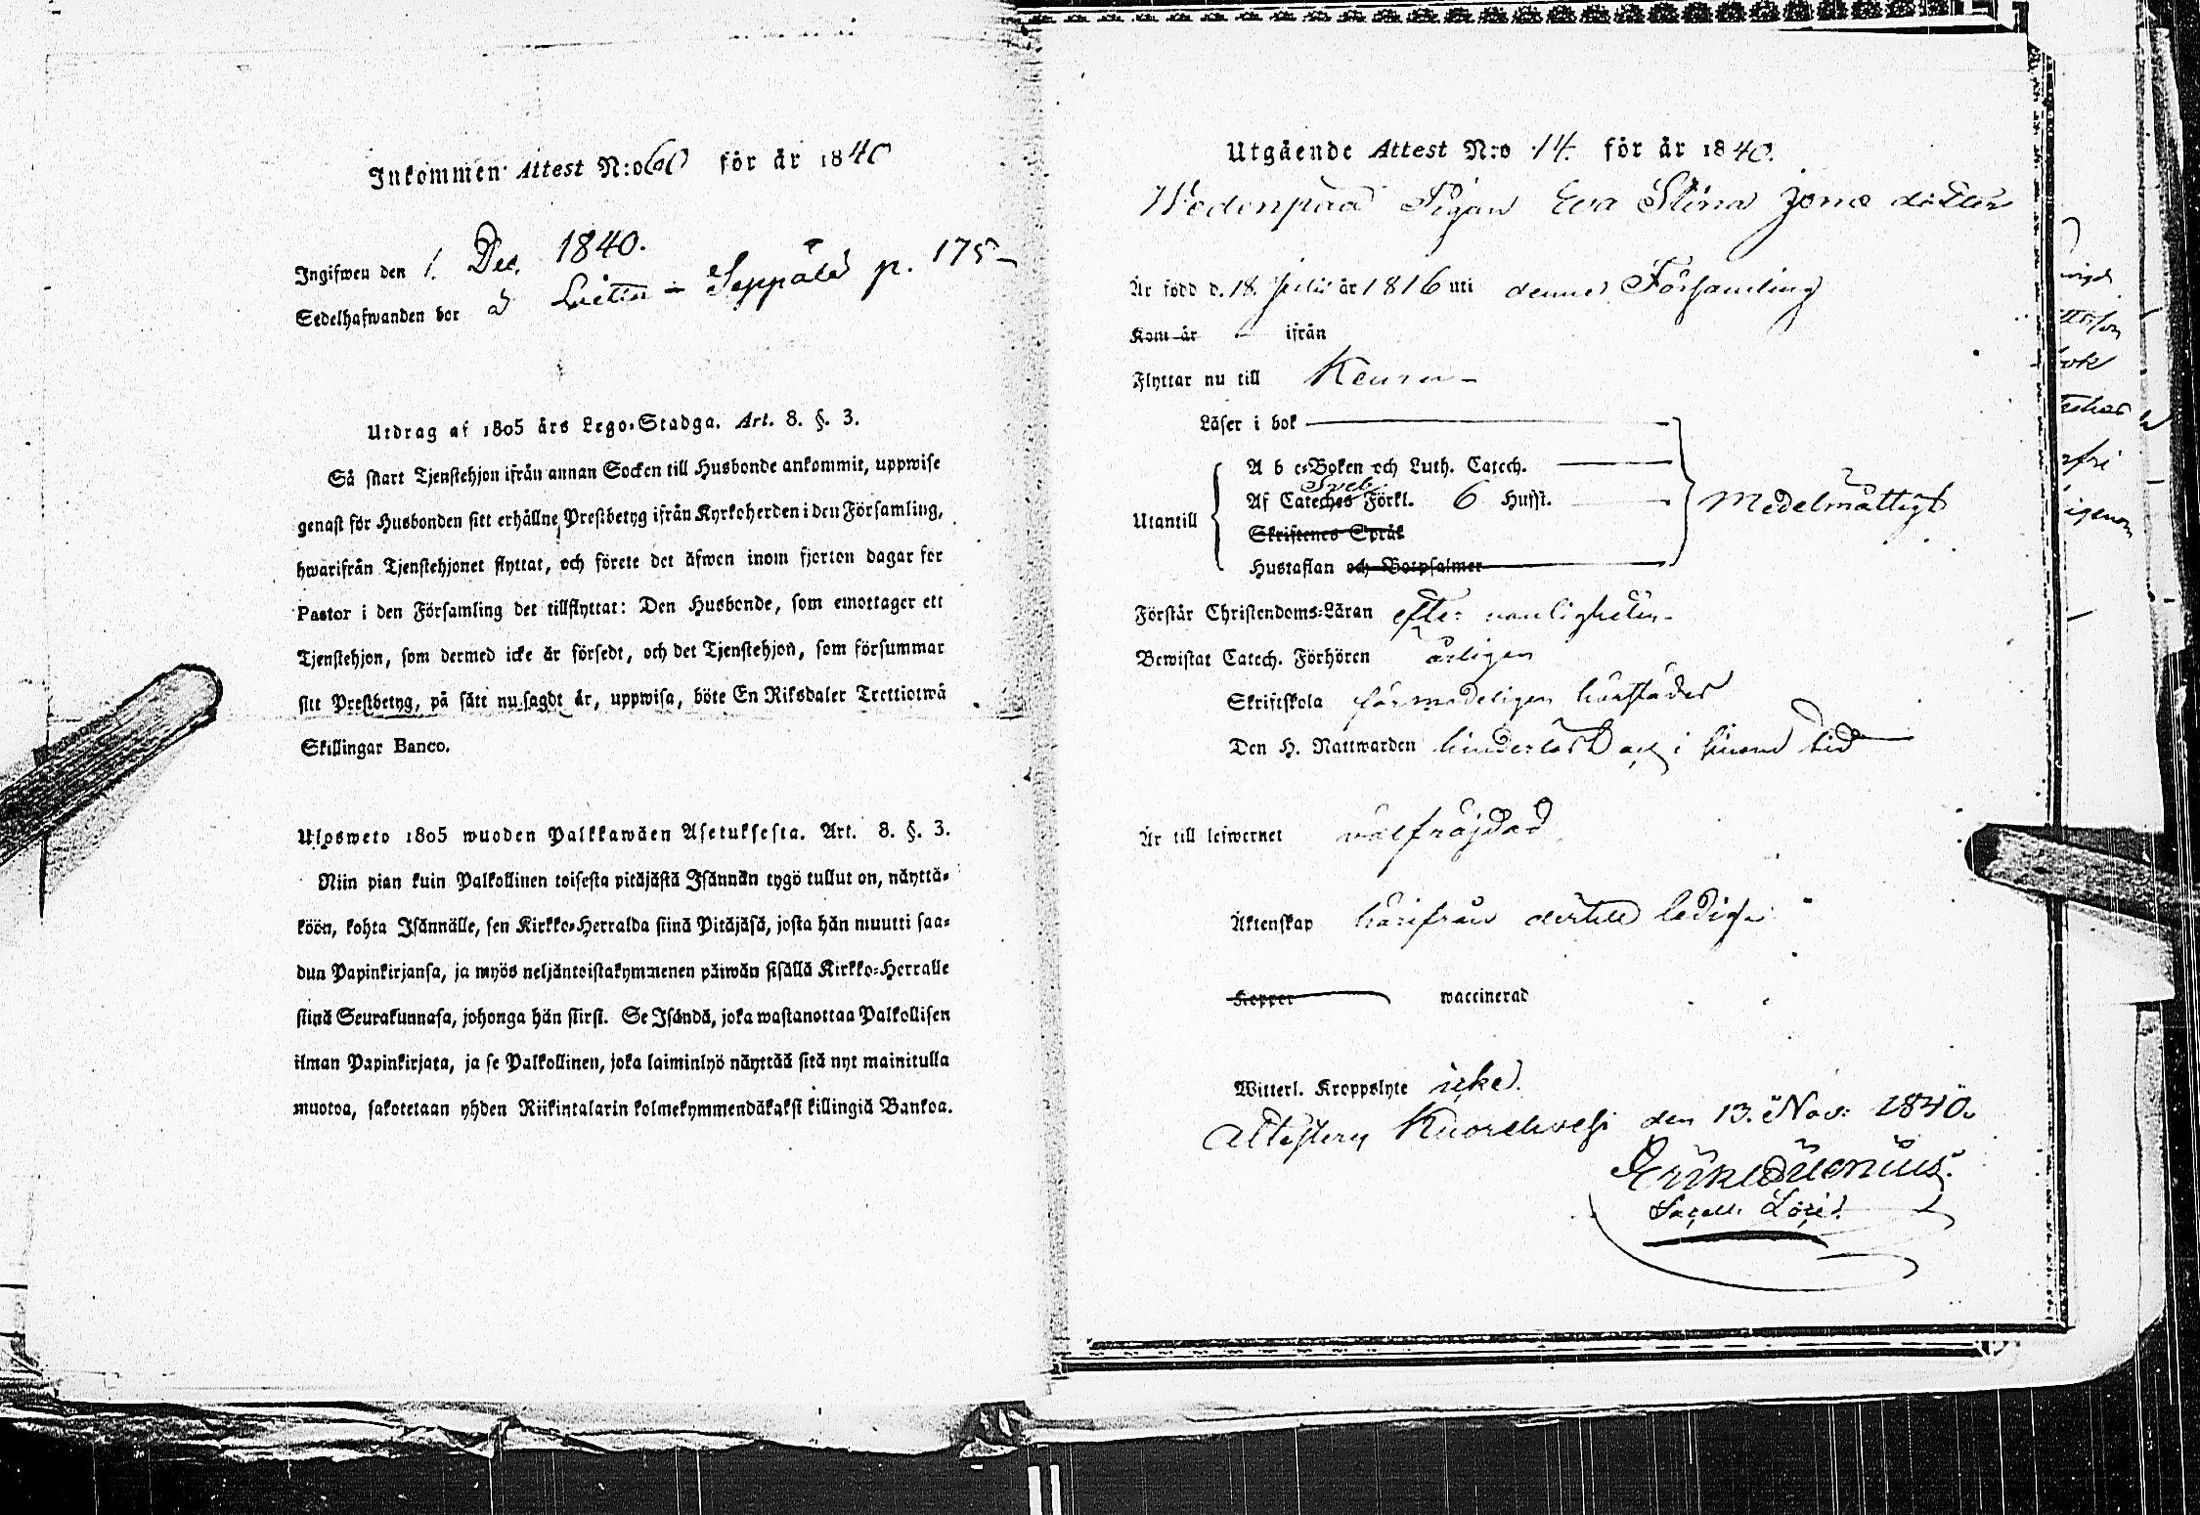 Inkommen Attest N:o 60 för år 1840
Ingifwen den 1. Dec. 1840.
Sedelhafwanden bor å Loitta - Seppälä p. 175-
Utdrag af 1805 års Lego-Stadga. Art. 8. §. 3.
Så snart Tjenstehjon ifrån annan Socken till Husbonde ankommit, uppwise
genast för Husbonden sitt erhållne Prestbetyg ifrån Kyrkoherden i den Församling,
hwarifrån Tjenstehjonet flyttat, och förete det äfwen inom fjorton dagar for
Pastor i den Församling det tillflyttat: Den Husbonde, som emottager ett
Tjenstehjon, som dermed icke är försedt, och det Tjenstehjon, som försummar
sitt Prestbetyg, på sätt nu sagdt är, uppwisa, böte En Riksdaler Trettiotwå
Skillingar Banco.
Ulosweto 1805 wuoden Palkkawäen Asetuksesta. Art. 8. §. 3.
Niin pian kuin Palkollinen toisesta pitäjästä Isännän tygö tullut on, näyttä-
köön, kohta Isännälle, sen Kirkko-Herralda siinä Pitäjäsä, josta hän muutti saa-
dun Papinkirjansa, ja myös neljäntoistakymmenen päiwän sisällä Kirkko-Herralle
siinä Seurakunnasa, johonga hän siirsi. Se Isändä, joka wastanottaa Palkollisen
ilman Papinkirjata, ja se Palkollinen, joka laiminlyö näyttää sitä nyt mainitulla
muotoa, sakotetaan yhden Riikintalarin kolmekymmendäkaksi killingiä Bankoa.
Utgående Attest N:o 14. för år 1840.
Wedenpää Pigan Eva Stina Jonæ dotter
Är född d. 18. Julii år 1816 uti denna Församling
Kom år ifrån
Flyttar nu till Keuru-
Läser i bok
A b c-Boken och Luth. Catech.
Sveb
Af Cateches Förkl. 6 Hufst.
Utantill
medelmåttigt
Skriftenes Språk
Hustaflan och Botpsalmer
Förstår Christendoms-Läran efter vanligheten
Bewistat Catech. Förhören årligen
Skriftskola förmodeligen härstädes
Den H. Nattwarden hinderlös och i sinom tid
Är till lefwernet välfräjdad
Äktenskap härifrån dertill ledig
Koppor waccinerad
Witterl. Kroppslyte icke.
Attestery Kuorehvesi den 13. Nov: 1840.
Sacell. Loci.